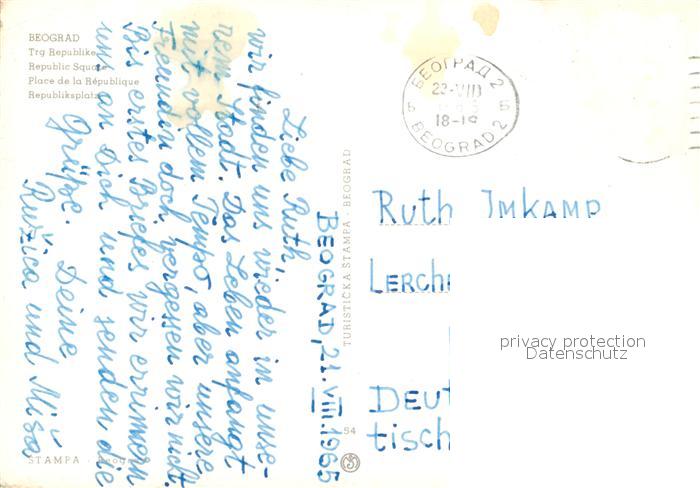 BEOGRAD
Trg Republike
Republic Square
Place de la République
Republiksplatz
Beograd, 21. VIII 1965
Liebe Ruth
wir finden uns wieder in unse-
rem Stadt. Das Leben anfangt
mit vollem Tempo, aber unsere
Freundin doch vergessen wir nicht.
Bis erstes Briefes wir errinnern
uns an Dich und senden die
Grüße. Deine
Ružica und Miša
STAMPA
TURISTIČKA ŠTAMPA - BEOGRAD
54
БЕОГРАД 2
23-VIII
Б Б
18-19
BEOGRAD 2
Ruth Imkamp
Lerch
Deut
tisch
privacy protection
Datenschutz